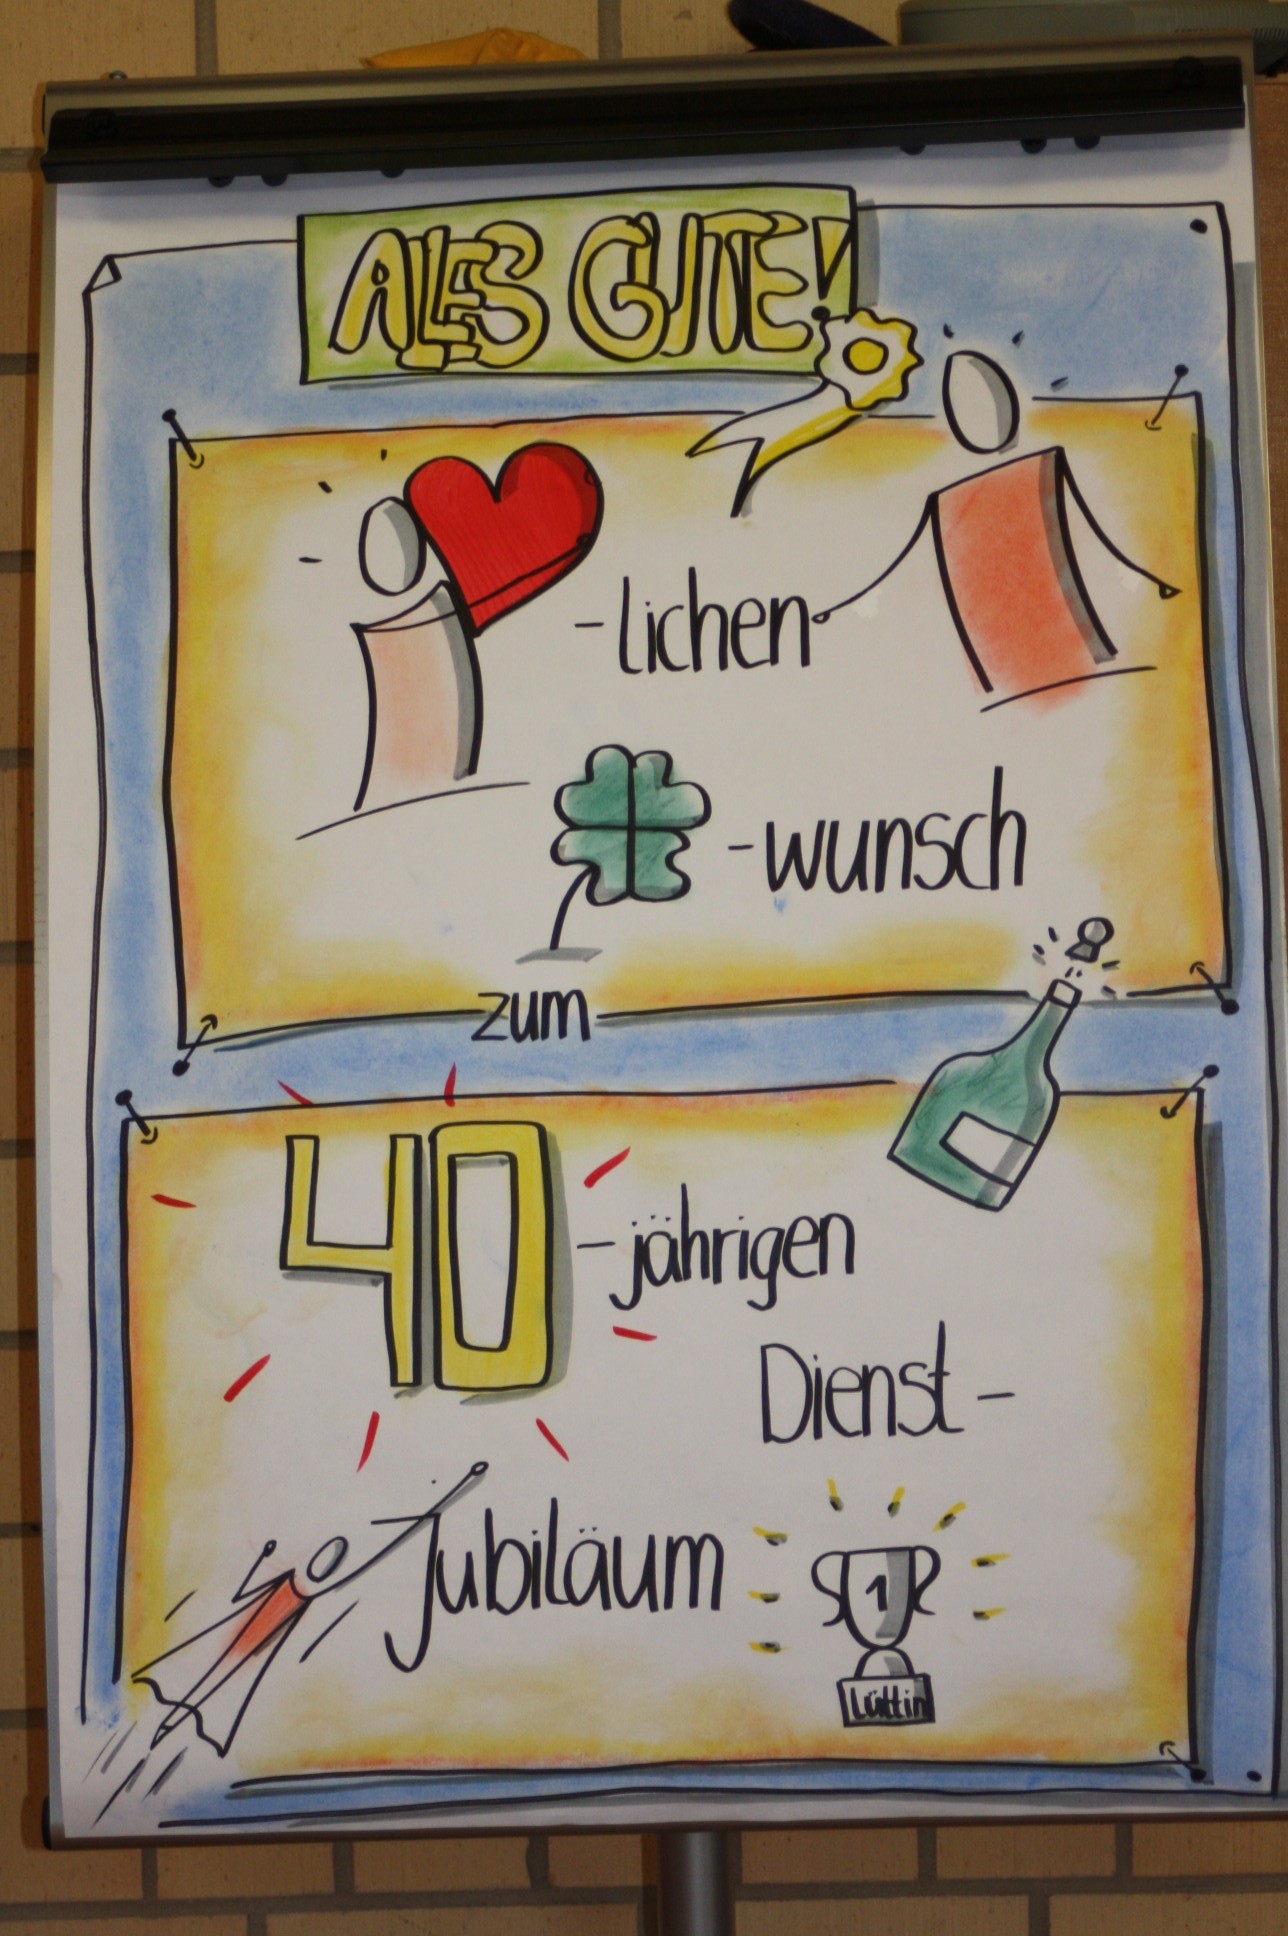 ALLES GUTE!
-lichen
-wunsch
zum
40 -jährigen
Dienst-
Jubiläum
1
Lüttin